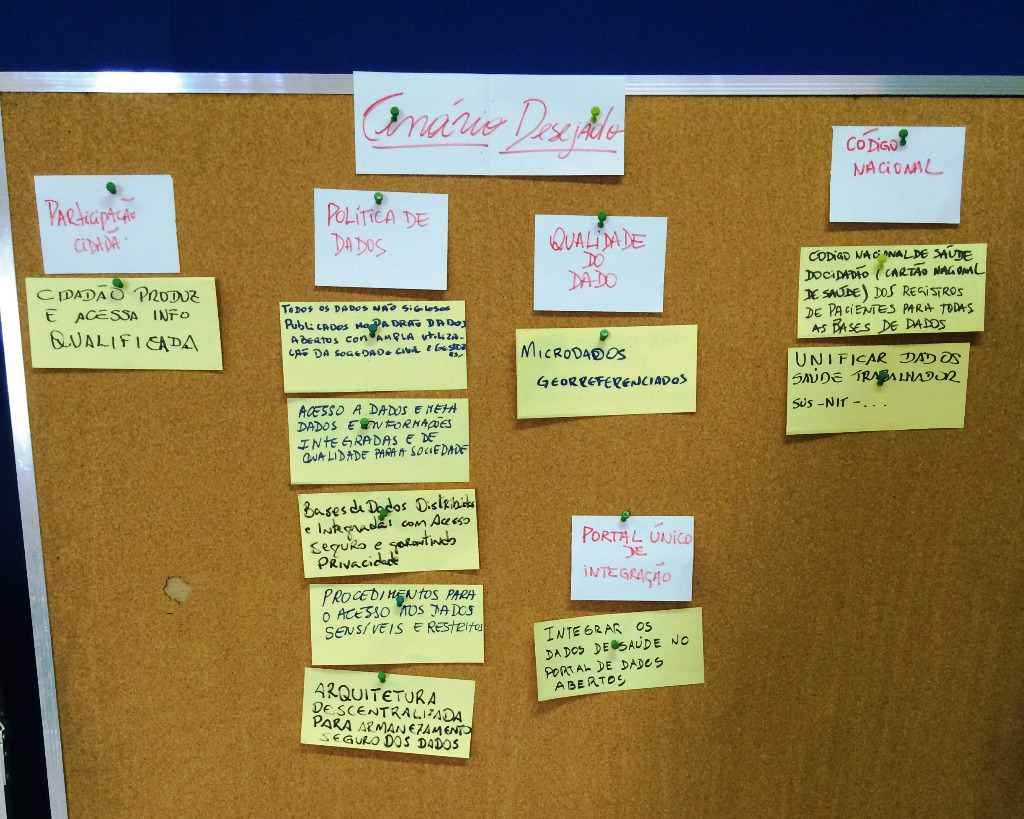 Cenário Desejado
Participação
cidadã:
CIDADÃO PRODUZ
E ACESSA INFO
QUALIFICADA
POLÍTICA DE
DADOS
TODOS OS DADOS NÃO SIGILOSOS
PUBLICADOS NO PADRÃO DADOS
ABERTOS COM AMPLA UTILIZA-
ÇÃO DA SOCIEDADE CIVIL E GESTO
RES.
ACESSO A DADOS E META
DADOS E INFORMAÇÕES
INTEGRADAS E DE
QUALIDADE PARA A SOCIEDADE
Bases de Dados Distribuídas
e Integradas com Acesso
Seguro e garantindo
Privacidade
PROCEDIMENTOS PARA
O ACESSO AOS DADOS
SENSÍVEIS E RESTRITOS
ARQUITETURA
DESCENTRALIZADA
PARA ARMANEZAMENTO
SEGURO DOS DADOS
QUALIDADE
DO
DADO
MICRODADOS
GEORREFERENCIADOS
PORTAL ÚNICO
DE
INTEGRAÇÃO
INTEGRAR OS
DADOS DE SAÚDE NO
PORTAL DE DADOS
ABERTOS
CÓDIGO
NACIONAL
CÓDIGO NACIONAL DE SAÚDE
DO CIDADÃO (CARTÃO NACIONAL
DE SAÚDE) DOS REGISTROS
DE PACIENTES PARA TODAS
AS BASES DE DADOS
UNIFICAR DADOS
SAÚDE TRABALHADOR
SUS-NIT-...